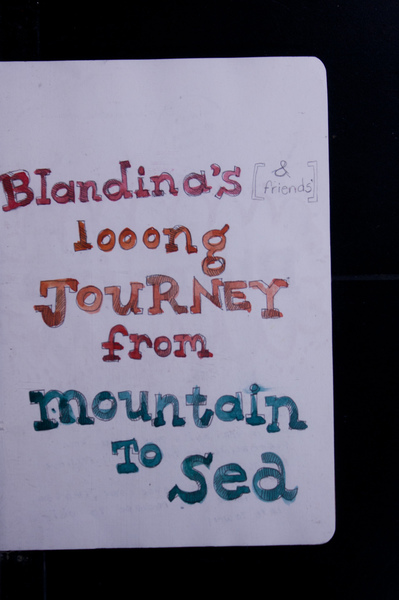 Blandina's [& friends']
looong
JOuRNEY
from
mountain
To
sea